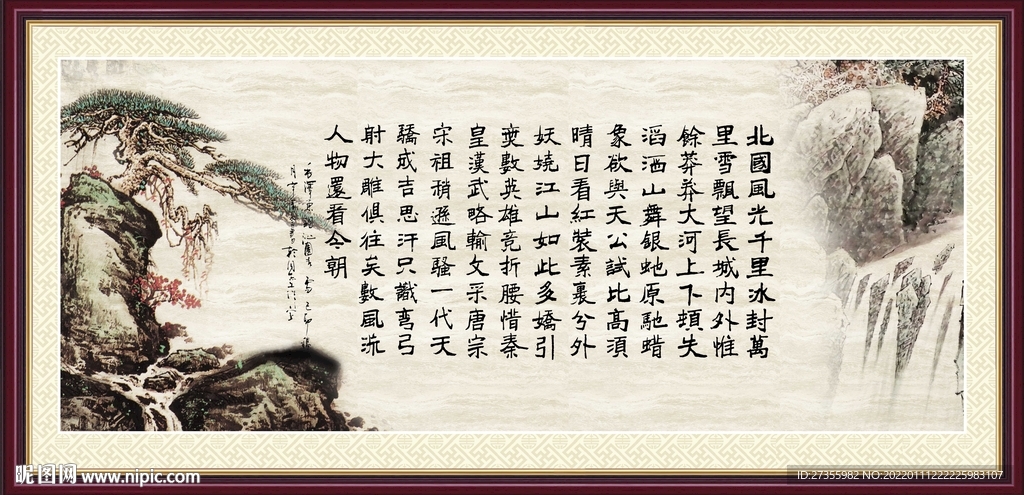 北國風光千里冰封萬
里雪飄望長城内外惟
餘莽莽大河上下頓失
滔滔山舞銀虵原馳蜡
象欲與天公試比高須
晴日看紅裝素裹兮外
妖嬈江山如此多嬌引
數英雄竞折腰惜秦
皇漢武略輸文采唐宗
宋祖稍遜風騷一代天
驕成吉思汗只識彎弓
射大雕俱往矣數風流
人物還看今朝
毛澤東詞沁園春雪
昵图网 www.nipic.com
ID:27355982 NO:20220111222225983107